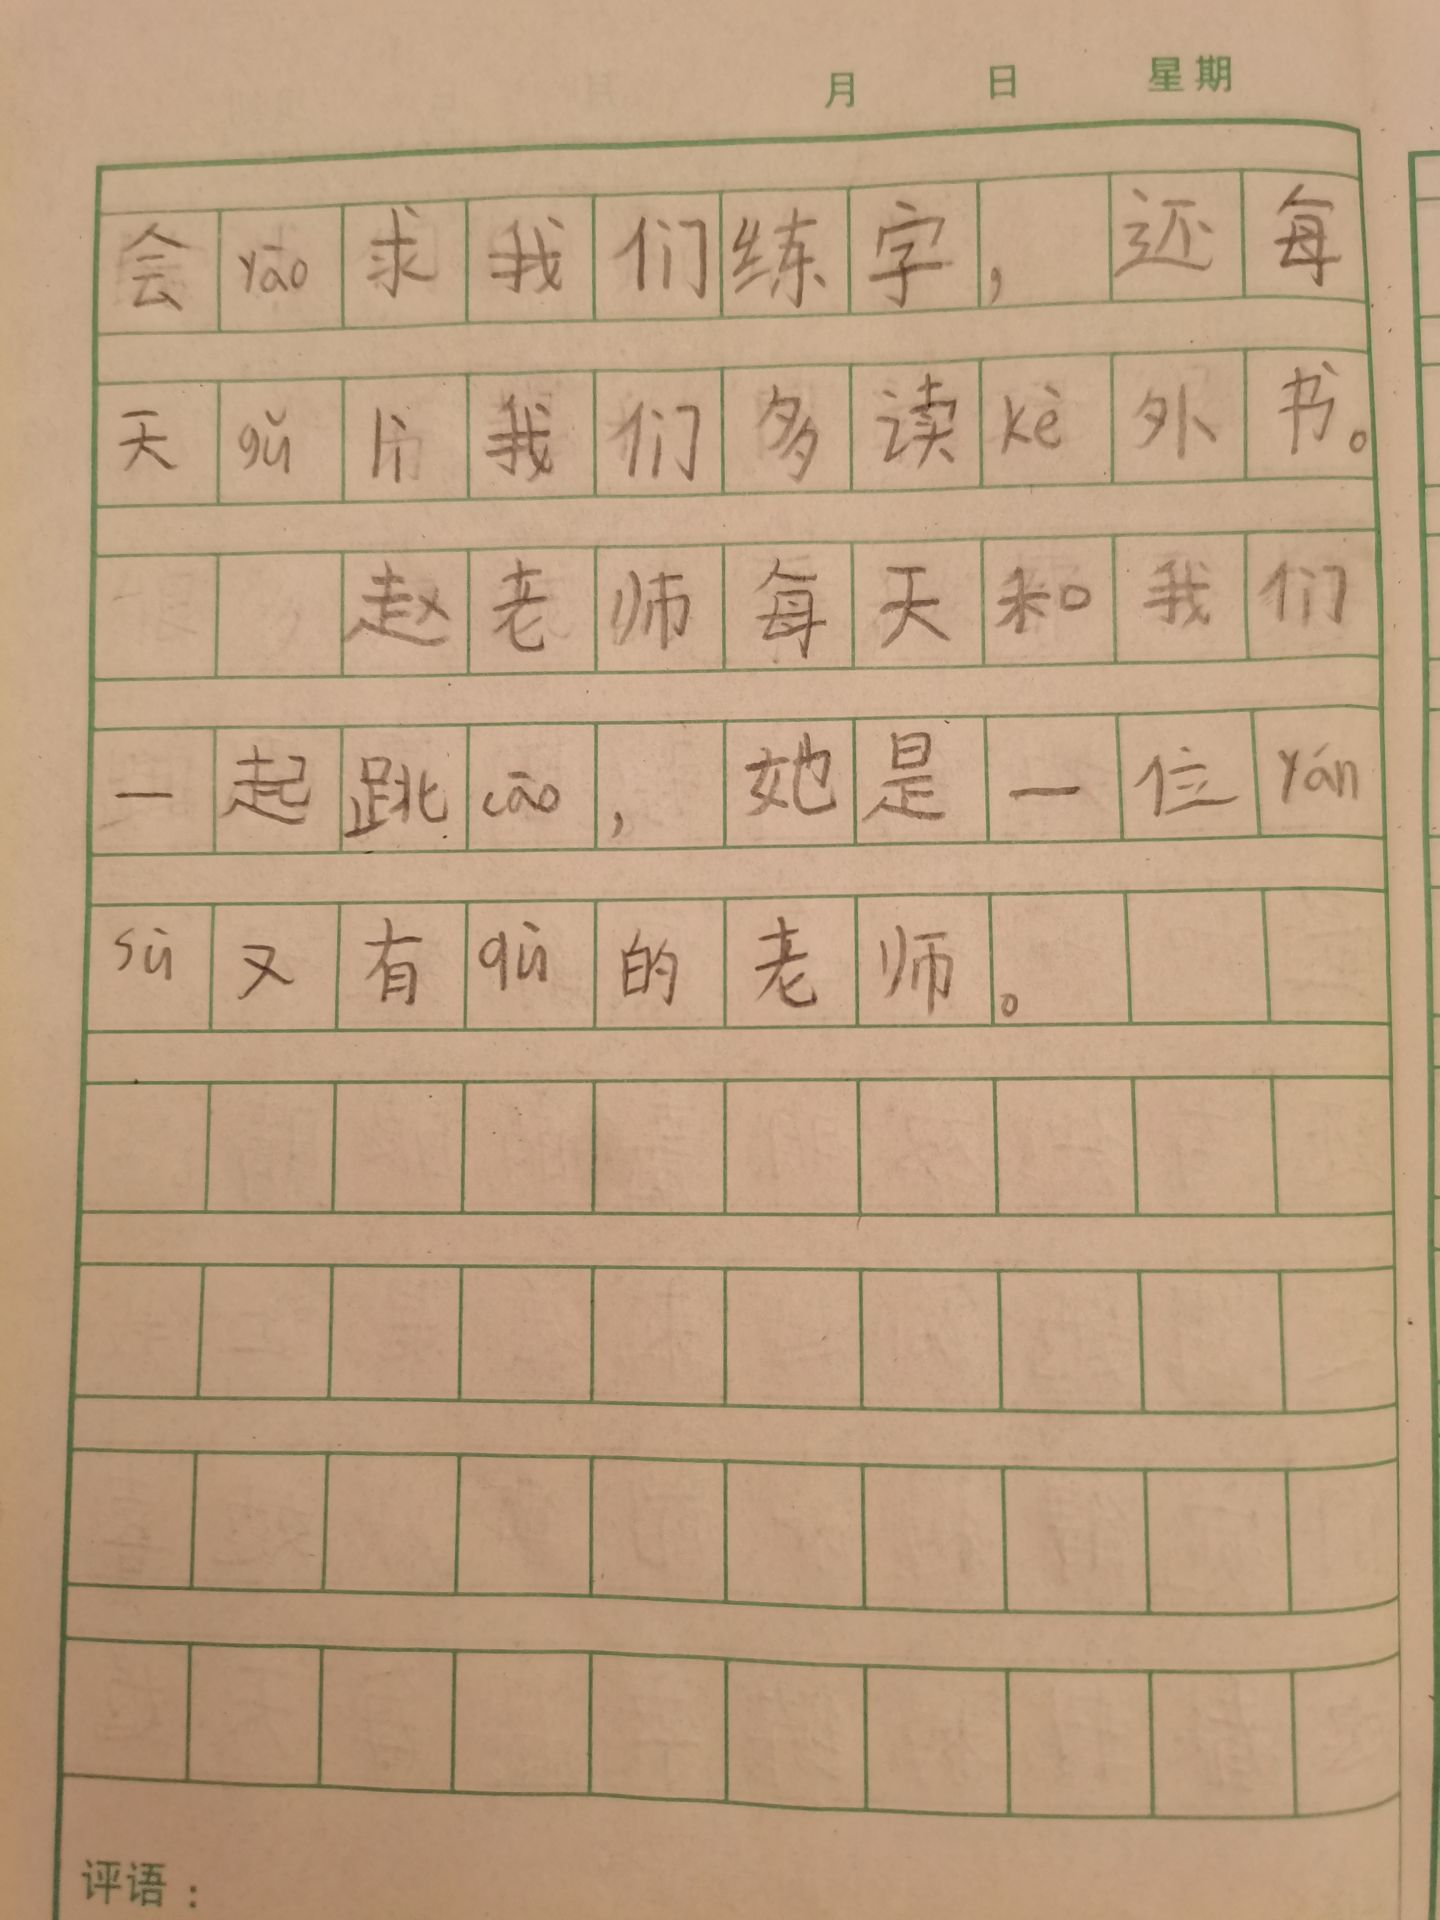 月 日 星期
会yāo求我们练字，还每
天gǔlì我们多读kè外书。
赵老师每天和我们
一起跳cāo，她是一位yán
sù又有qù的老师。
评语：